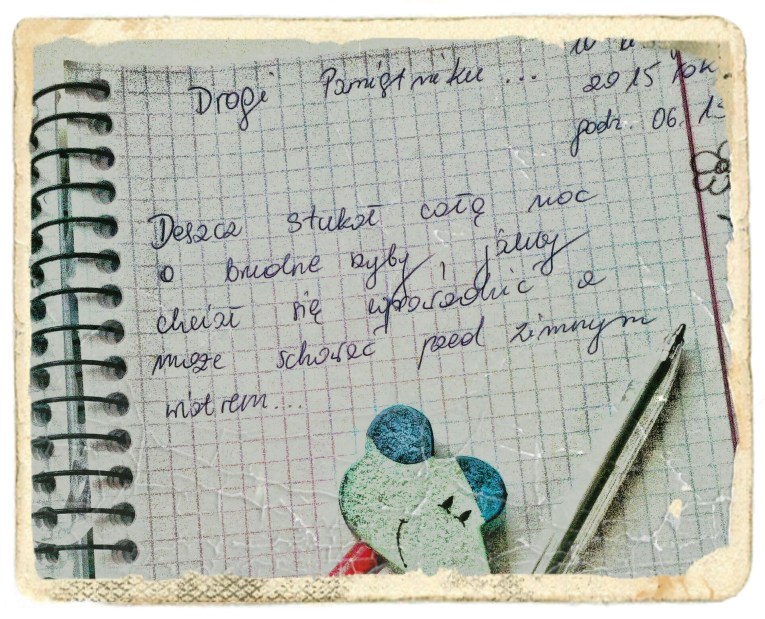 Drogi Pamiętniku ...
2015 rok.
godz. 06.
Deszcz stukał całą noc
o brudne szyby, jakby
chciał się wprowadzić a
może schować przed zimnym
wiatrem....